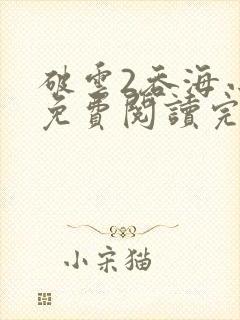 破雲2吞海
免費閱讀完
小宋猫